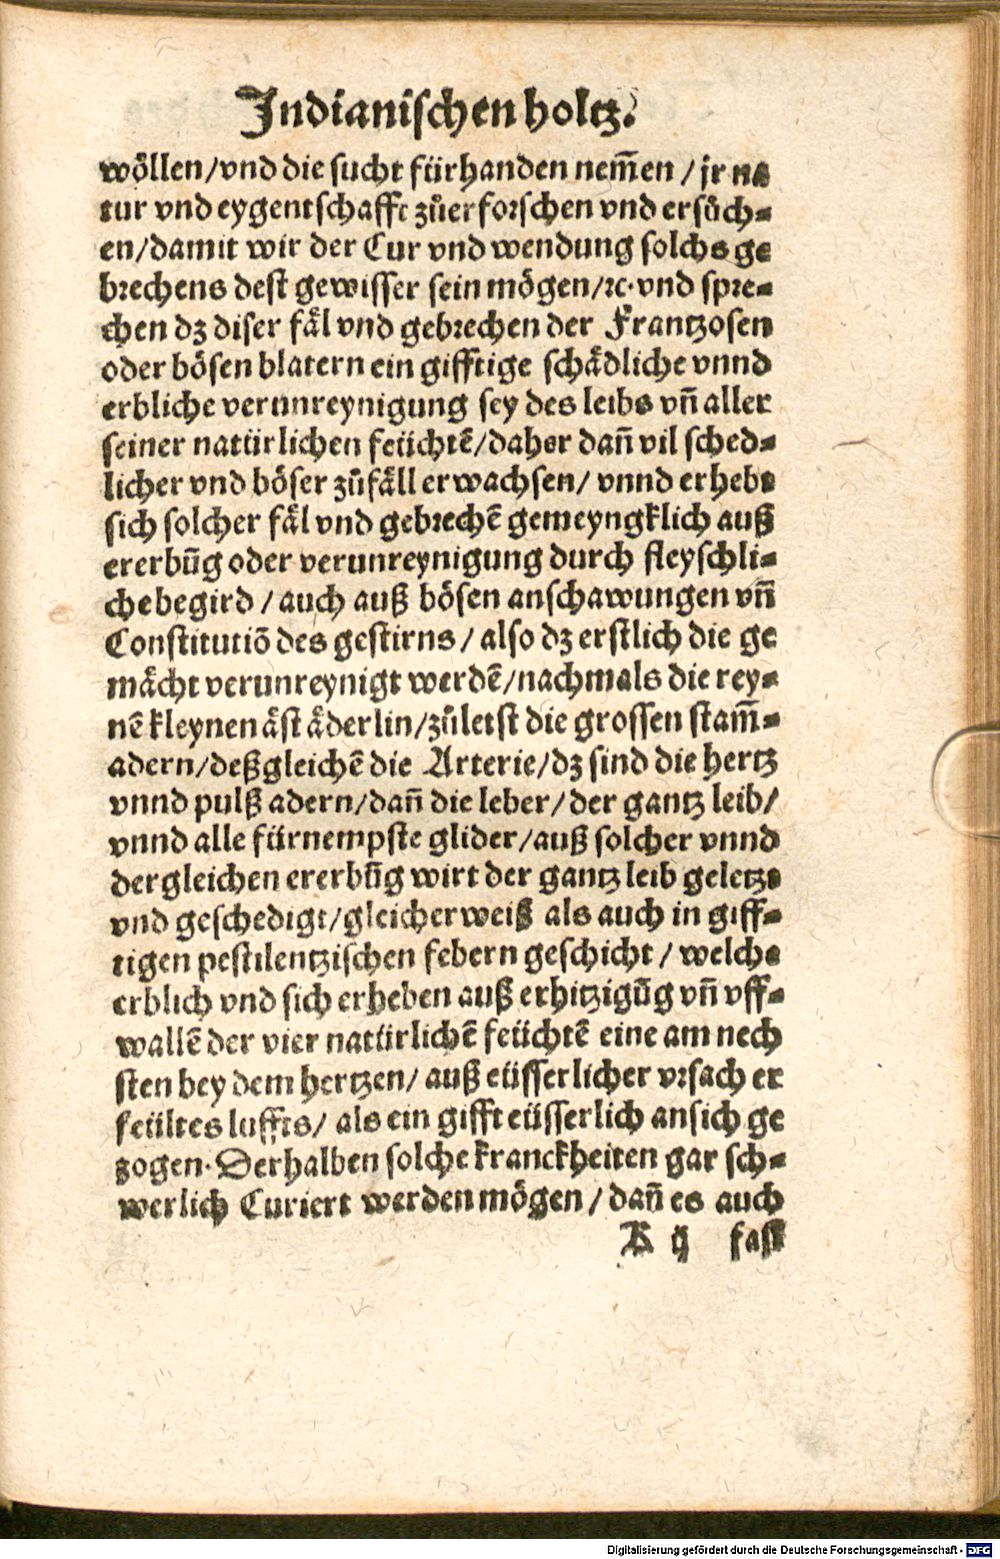 Indianischen holtz.
wöllen/vnd die sucht fürhanden nem̃en/jr na
tur vnd eygentschafft zůerforschen vnd ersůch⸗
en/damit wir der Cur vnd wendung solchs ge
brechens dest gewisser sein mögen/ꝛc. vnd spre⸗
chen dz diser fäl vnd gebrechen der Frantzosen
oder bösen blatern ein gifftige schädliche vnnd
erbliche verunreynigung sey des leibs vñ aller
seiner natürlichen feüchtẽ/daher dañ vil sched⸗
licher vnd böser zůfäll erwachsen/vnnd erhebe
sich solcher fäl vnd gebrechẽ gemeyngklich auß
ererbũg oder verunreynigung durch fleyschli⸗
che begird/auch auß bösen anschawungen vñ
Constitutiõ des gestirns/also dz erstlich die ge
mächt verunreynigt werdẽ/nachmals die rey⸗
nẽ kleynen äst äderlin/zůletst die grossen stam̃⸗
adern/deßgleichẽ die Arterie/dz sind die hertz
vnnd pulß adern/dañ die leber/der gantz leib/
vnnd alle fürnempste glider/auß solcher vnnd
dergleichen ererbũg wirt der gantz leib geletzt
vnd geschedigt/gleicherweiß als auch in giff⸗
tigen pestilentzischen febern geschicht/welche
erblich vnd sich erheben auß erhitzigũg vñ vff⸗
wallẽ der vier natürlichẽ feüchtẽ eine am nech
sten bey dem hertzen/auß eüsserlicher vrsach er
feültes luffts/als ein gifft eüsserlich an sich ge
zogen. Derhalben solche kranckheiten gar sch⸗
werlich Curiert werden mögen/dañ es auch
A ij fast
Digitalisierung gefördert durch die Deutsche Forschungsgemeinschaft - DFG